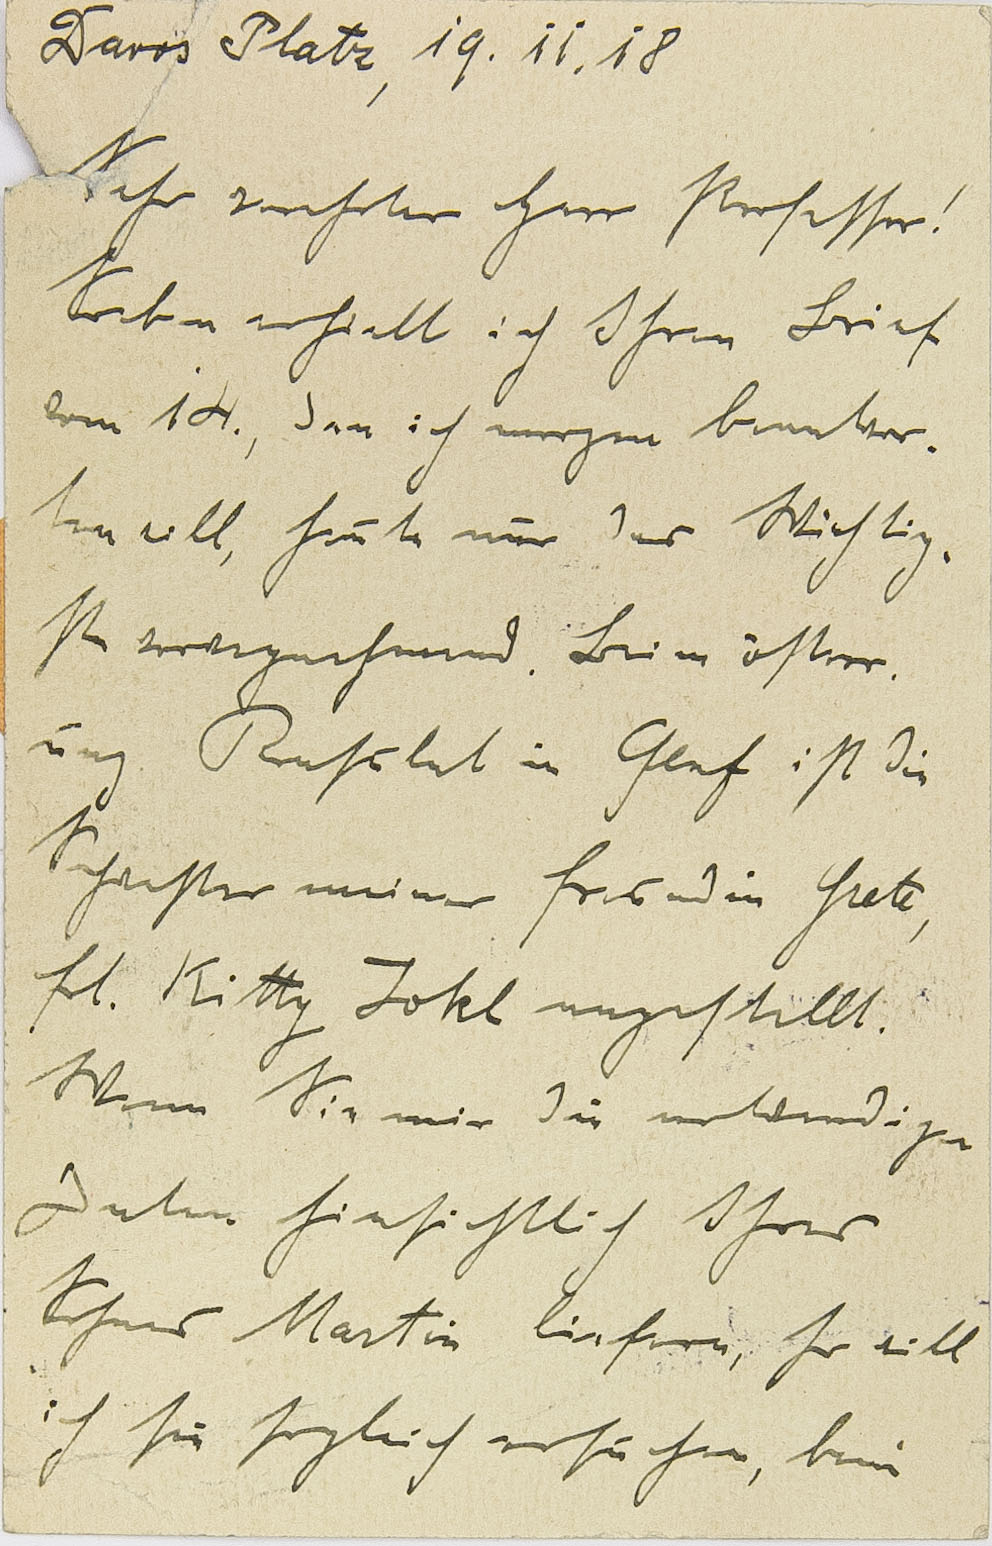 Davos Platz, 19. 11. 18
Sehr verehrter Herr Professor!
Soeben erhielt ich Ihren Brief
vom 14., den ich morgen beantwor-
ten will, heute nur das Wichtig-
ste vorwegnehmend. Beim österr.
ung Konsulat in Genf ist die
Schwester meiner Freundin Grete,
Frl. Kitty Jokl angestellt.
Wenn Sie mir die notwendigen
Daten hinsichtlich Ihres
Sohnes Martin liefern, so will
ich sie sogleich ersuchen, beim